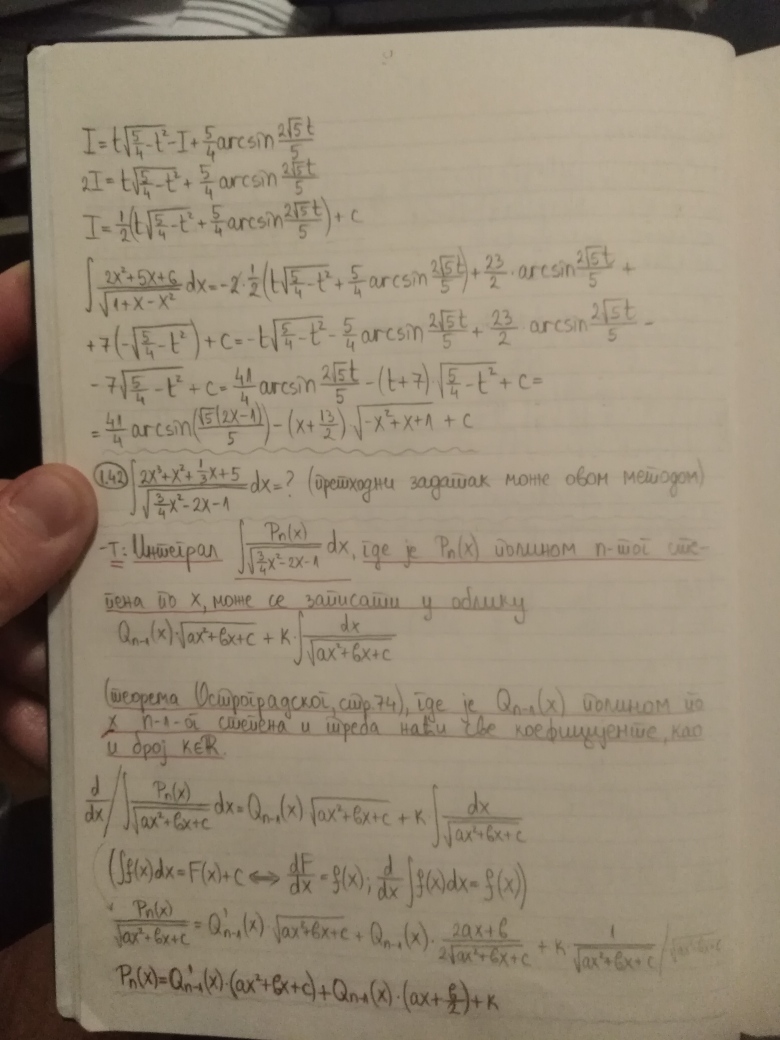 I=t√(5/4-t²)-I+5/4 arcsin 2√5t/5
2I=t√(5/4-t²)+5/4 arcsin 2√5t/5
I=1/2(t√(5/4-t²)+5/4 arcsin 2√5t/5)+c
∫(2x²+5x+6)/√(1+x-x²) dx=-2·1/2(t√(5/4-t²)+5/4 arcsin 2√5t/5)+23/2·arcsin 2√5t/5+
+7(-√(5/4-t²))+c=-t√(5/4-t²)-5/4 arcsin 2√5t/5+23/2·arcsin 2√5t/5-
-7√(5/4-t²)+c=41/4 arcsin 2√5t/5-(t+7)·√(5/4-t²)+c=
=41/4 arcsin(√5(2x-1)/5)-(x+13/2)·√(-x²+x+1)+c
1.42 ∫(2x³+x²+1/3x+5)/√(3/4x²-2x-1) dx=? (претходни задатак може овом методом)
-Т: Интеграл ∫Pn(x)/√(3/4x²-2x-1) dx, где је Pn(x) полином n-тог сте-
пена по x, може се записати у облику
Qn-1(x)·√(ax²+bx+c)+K·∫dx/√(ax²+bx+c)
(теорема Остроградског, стр.74), где је Qn-1(x) полином по
x n-1-ог степена и треба наћи све коефицијенте, као
и број K∈R.
d/dx/ ∫Pn(x)/√(ax²+bx+c) dx=Qn-1(x)√(ax²+bx+c)+K∫dx/√(ax²+bx+c)
(∫f(x)dx=F(x)+c ⟺ dF/dx=f(x); d/dx∫f(x)dx=f(x))
Pn(x)/√(ax²+bx+c)=Q'n-1(x)·√(ax²+bx+c)+Qn-1(x)·(2ax+b)/(2√(ax²+bx+c))+K·1/√(ax²+bx+c) /√(ax²+bx+c)
Pn(x)=Q'n-1(x)·(ax²+bx+c)+Qn-1(x)·(ax+b/2)+K